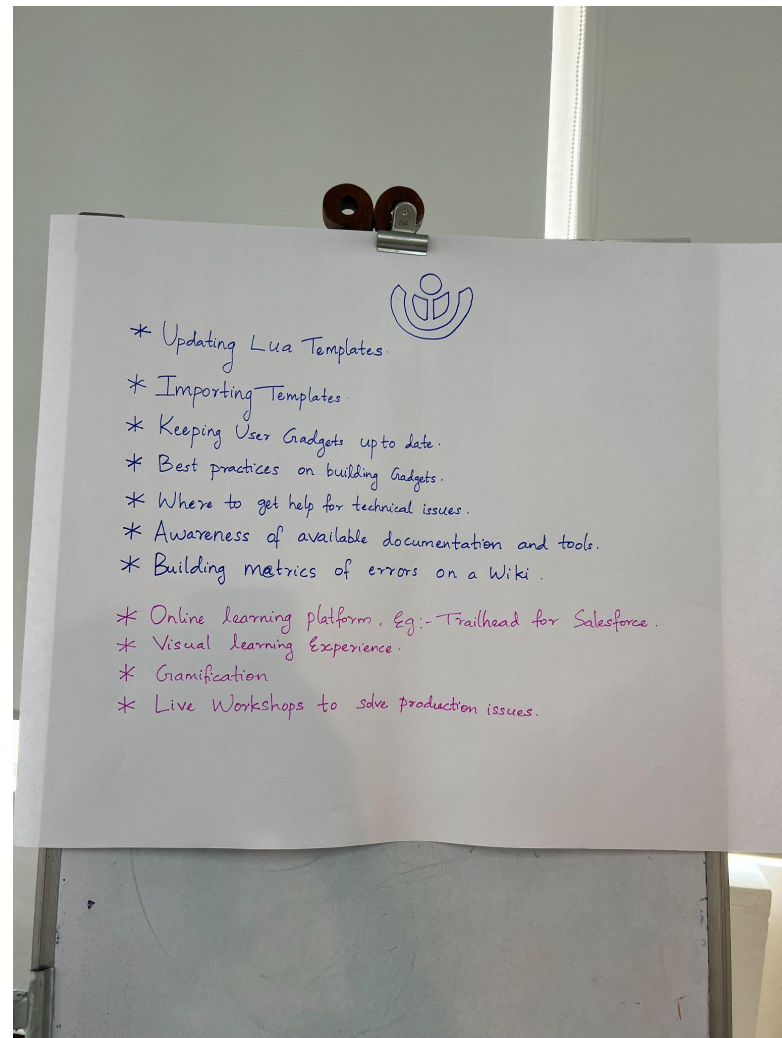 * Updating Lua Templates.
* Importing Templates.
* Keeping User Gadgets up to date.
* Best practices on building Gadgets.
* Where to get help for technical issues.
* Awareness of available documentation and tools.
* Building metrics of errors on a Wiki.
* Online learning platform, Eg:- Trailhead for Salesforce.
* Visual learning Experience.
* Gamification
* Live Workshops to solve production issues.